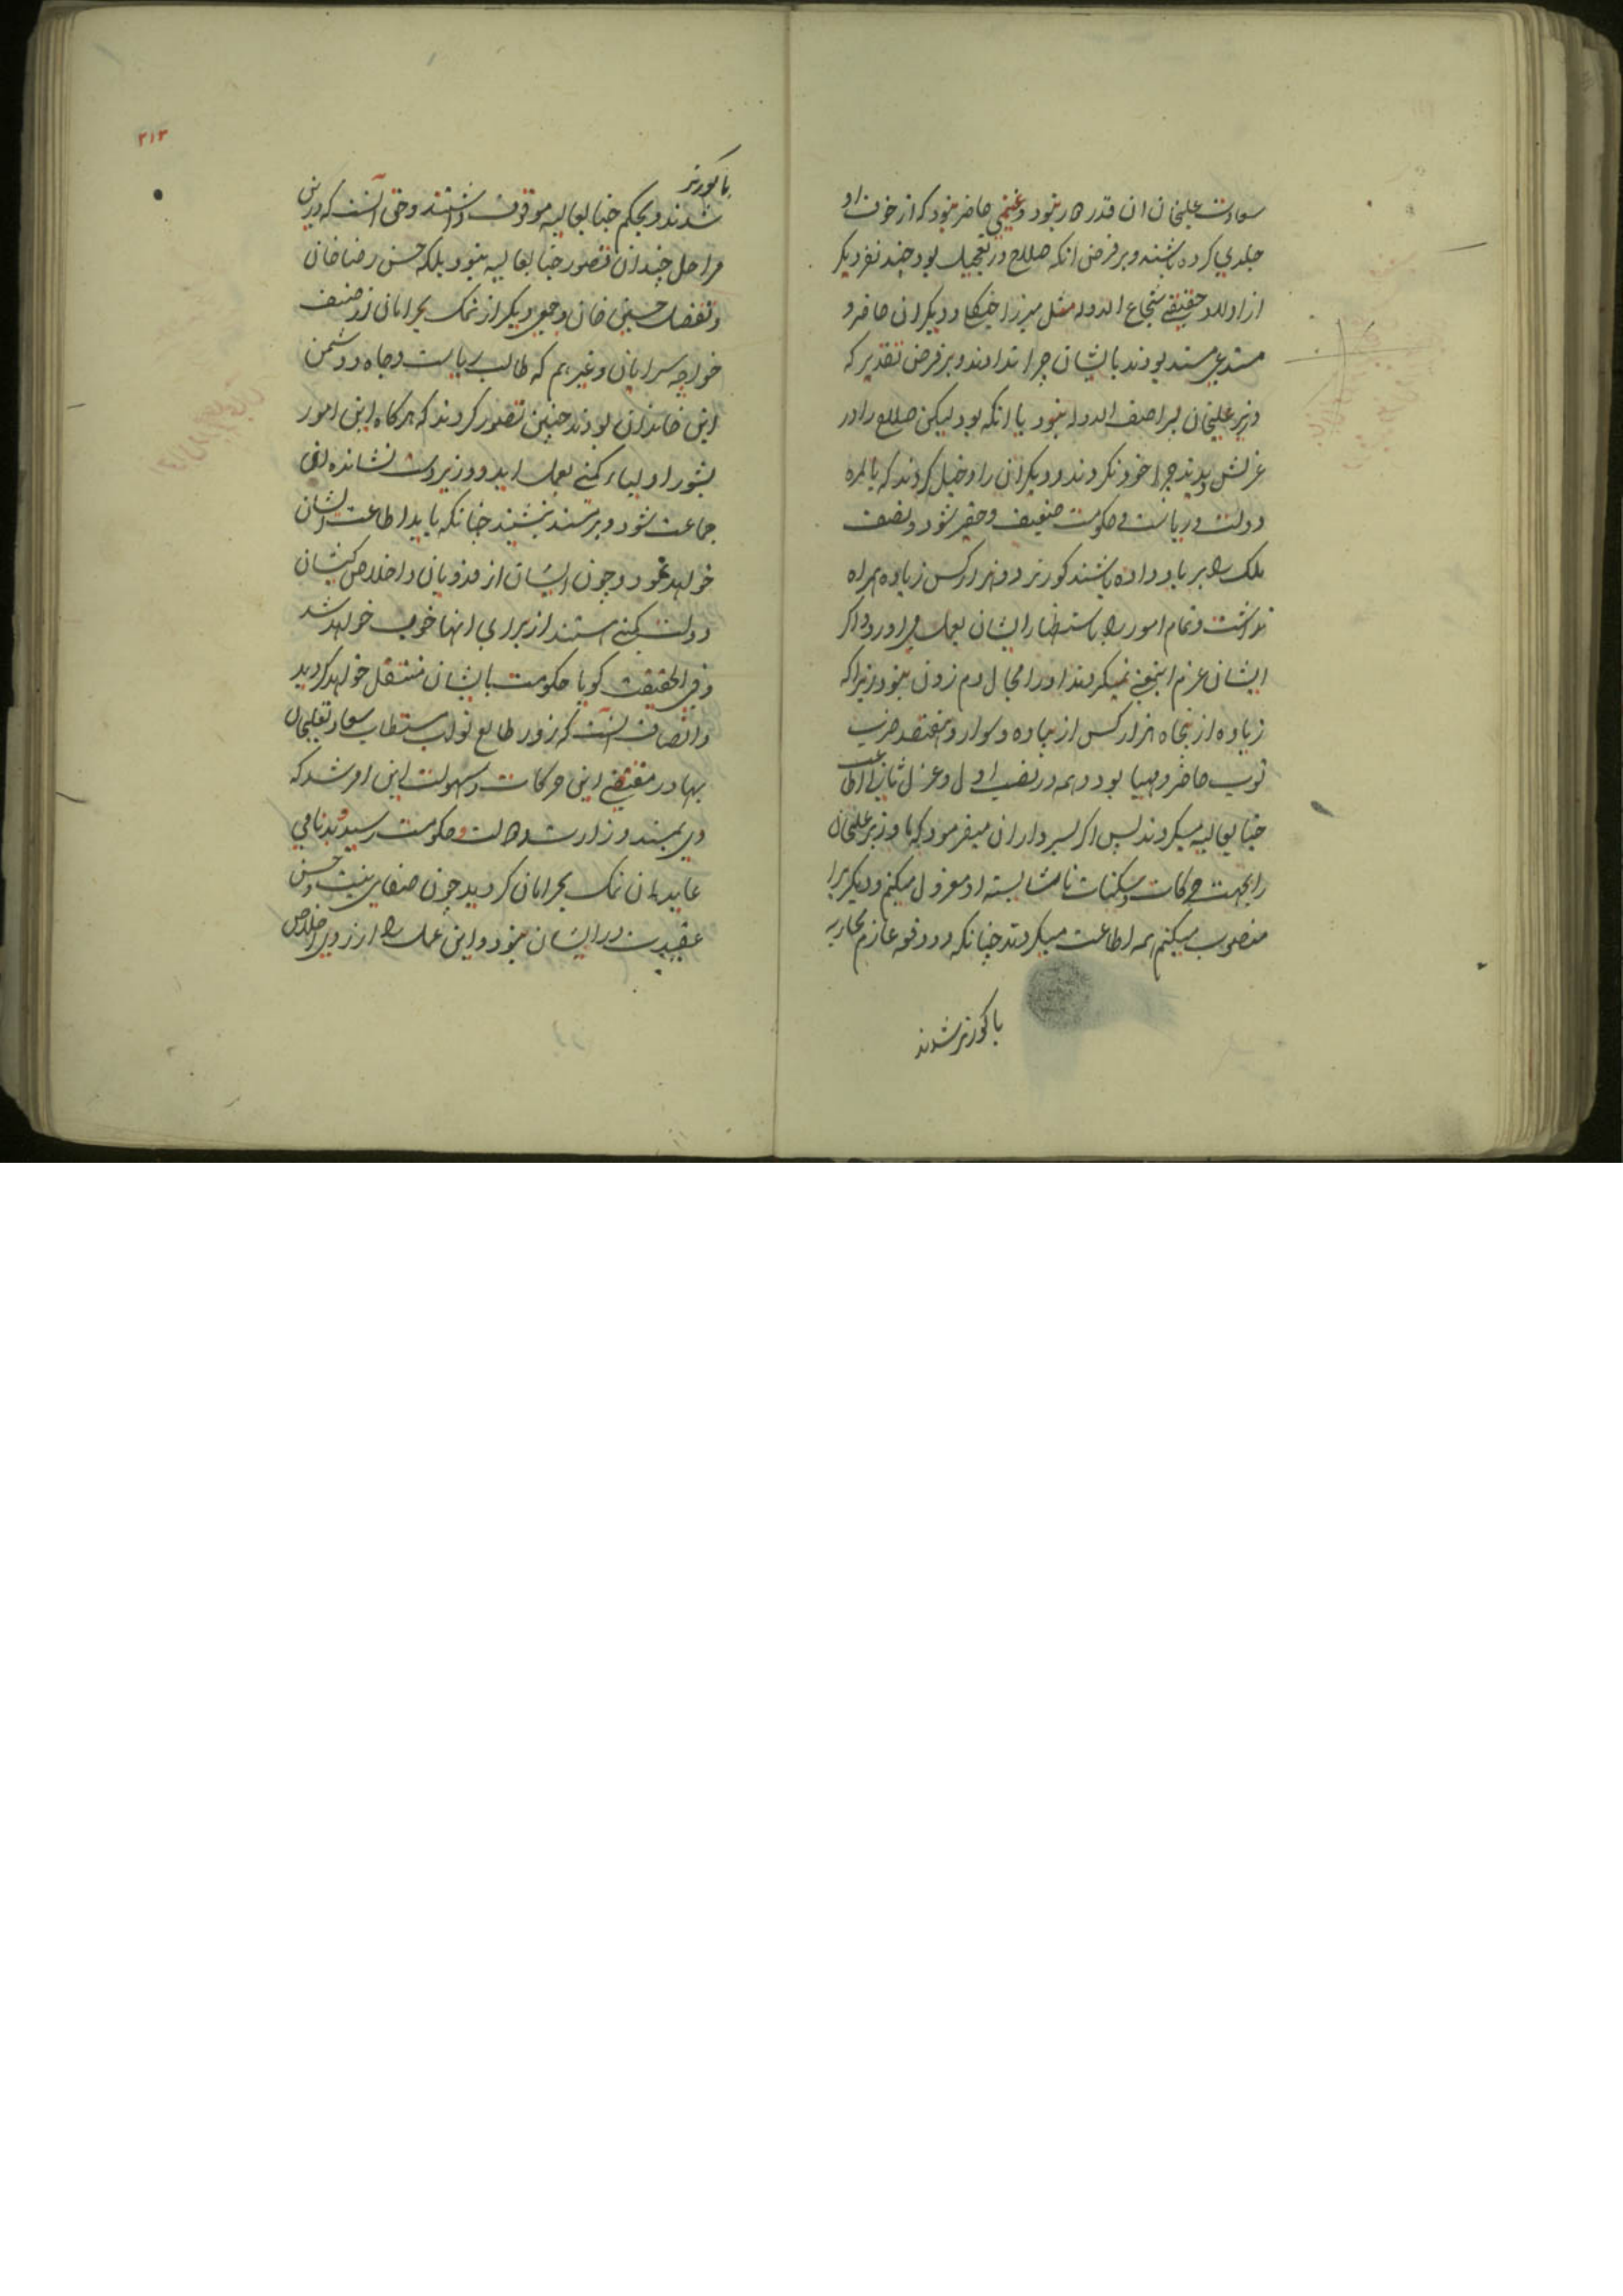 سعادت علیخان ان قدرها نبود و غنیمی حاضر نبود که از خوف او
جلدی کرده باشند و بر فرض انکه صلاح در تعجیل بود چند نفر دیگر
از اولاد حقیقی شجاع الدوله مثل میرزا جنگلی و دیگران حاضر و
مستدعی مسند بودند بایشان چرا ندادند و بر فرض تقدیر که
وزیر علیخان پسر اصف الدوله نبود یا انکه بود لیکن صلاح را در
عزلش دیدند چرا خود نکردند و دیگران را دخیل کردند که بالمره
دولت و ریاست و حکومت ضعیف و حقیر شود و نصف
ملک را بر باد داده باشند کورنر دو هزار کس زیاده همراه
نداشت و تمام امور را باستحضار ایشان بعمل می اورد و اکر
ایشان عزم اینمعنی نمیکردند او را مجال دم زدن نبود زیرا که
زیاده از پنجاه هزار کس از پیاده و سوار و هفتصد ضرب
توپ حاضر و مهیا بود و همه در نصب اول و عزل ثانی اطاعت
جنابعالیه میکردند پس اکر بسرداران میفرمود که ما وزیر علیخان
را بجهت حرکات و سکنات ناشایسته او معزول میکنم و دیکریرا
منصوب میکنم همه اطاعت میکردند چنانکه دو دفعه عازم محاربه
با کورنر شدند
۲۱۳
با کورنر
شدند و بحکم جنابعالیه موقوف داشتند و حق انست که درین
مراحل چندان قصور جنابعالیه نبود بلکه حسن رضا خان
و تفضل حسین خان و جمعی دیگر از نمک بحرامان از صنف
خواجه سرایان و غیرهم که طالب ریاست و جاه و دشمن
این خاندان بودند چنین تصور کردند که هرکاه این امور
بشور اولیاء کمپنی بعمل اید و وزیر دست نشانده این
جماعت شود و بر مسند بنشیند چنانکه باید اطاعت ایشان
خواهد نمود و چون ایشان از فدویان و اخلاص کیشان
دولت کمپنی هستند از برای انها خوب خواهد شد
و فی الحقیقت کویا حکومت بایشان منتقل خواهد کردید
و انصاف انست که زور طالع نواب مستطاب سعادتعلیخان
بهادر مقتضی این حرکات و سهولت این امر شد که
وی بمسند وزارت و ایالت و حکومت رسید و بدنامی
عاید ان نمک بحرامان کردید چون صفای نیت و حسن
عقیدت در ایشان نبود و این عمل را از روی اخلاص